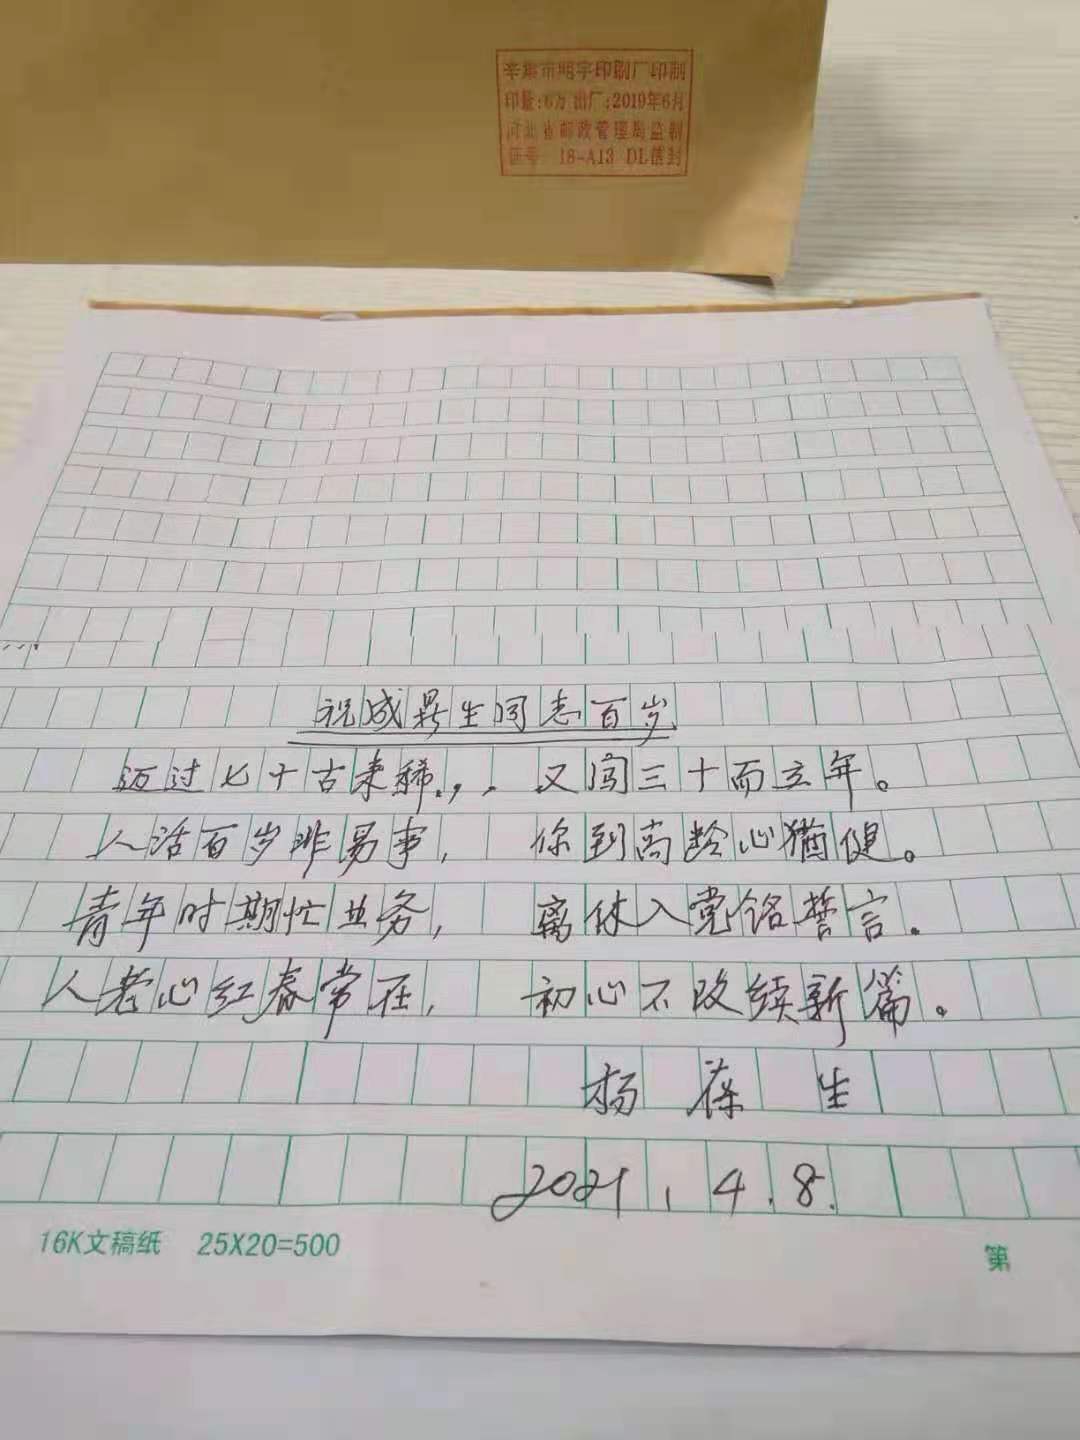 辛集市明宇印刷厂印刷
印量:6万 出厂:2019年6月
河北省邮政管理局监制
证号: 18-A13 DL信封
祝成昇生同志百岁
迈过七十古来稀,. 又闯三十而立年。
人活百岁非易事, 你到高龄心犹健。
青年时期忙业务, 离休入党铭誓言。
人老心红春常在, 初心不改续新篇。
杨葆生
2021.4.8.
16K文稿纸 25X20=500 第